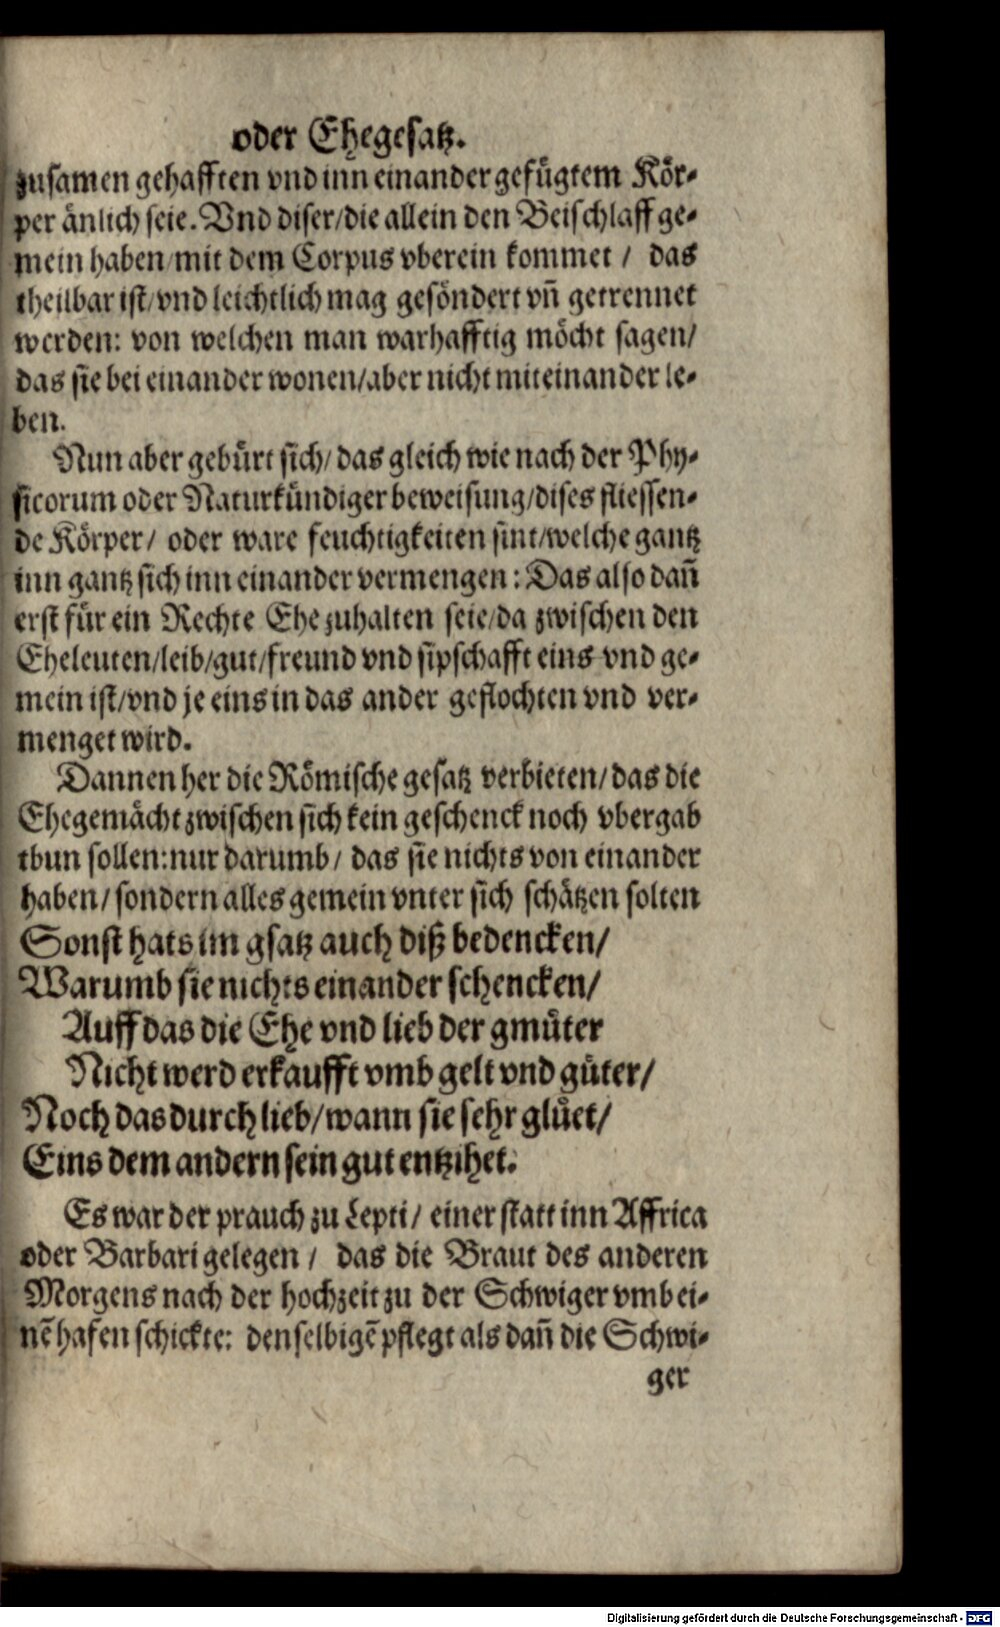 oder Ehegesatz.
zusamen gehafften vnd inn einander gefügtem Kör-
per änlich seie. Vnd diser/die allein den Beischlaff ge-
mein haben/mit dem Corpus vberein kommet / das
theilbar ist/vnd leichtlich mag gesöndert vñ getrennet
werden: von welchen man warhafftig möcht sagen/
das sie bei einander wonen/aber nicht miteinander le-
ben.
Nun aber gebürt sich/das gleich wie nach der Phy-
sicorum oder Naturkündiger beweisung/dises fliessen-
de Körper/ oder ware feuchtigkeiten sint/welche gantz
inn gantz sich inn einander vermengen: Das also dañ
erst für ein Rechte Ehe zuhalten seie/da zwischen den
Eheleuten/leib/gut/freund vnd sipschafft eins vnd ge-
mein ist/vnd je eins in das ander geflochten vnd ver-
menget wird.
Dannen her die Römische gesatz verbieten/das die
Ehegemächt zwischen sich kein geschenck noch vbergab
thun sollen: nur darumb/ das sie nichts von einander
haben/sondern alles gemein vnter sich schätzen solten
Sonst hats im gsatz auch diß bedencken/
Warumb sie nichts einander schencken/
Auff das die Ehe vnd lieb der gmüter
Nicht werd erkaufft vmb gelt vnd güter/
Noch das durch lieb/wann sie sehr glüet/
Eins dem andern sein gut entzihet.
Es war der prauch zu Lepti/ einer statt inn Affrica
oder Barbari gelegen / das die Braut des anderen
Morgens nach der hochzeit zu der Schwiger vmb ei-
nẽ hafen schickte: denselbigẽ pflegt als dañ die Schwi-
ger
Digitalisierung gefördert durch die Deutsche Forschungsgemeinschaft - DFG